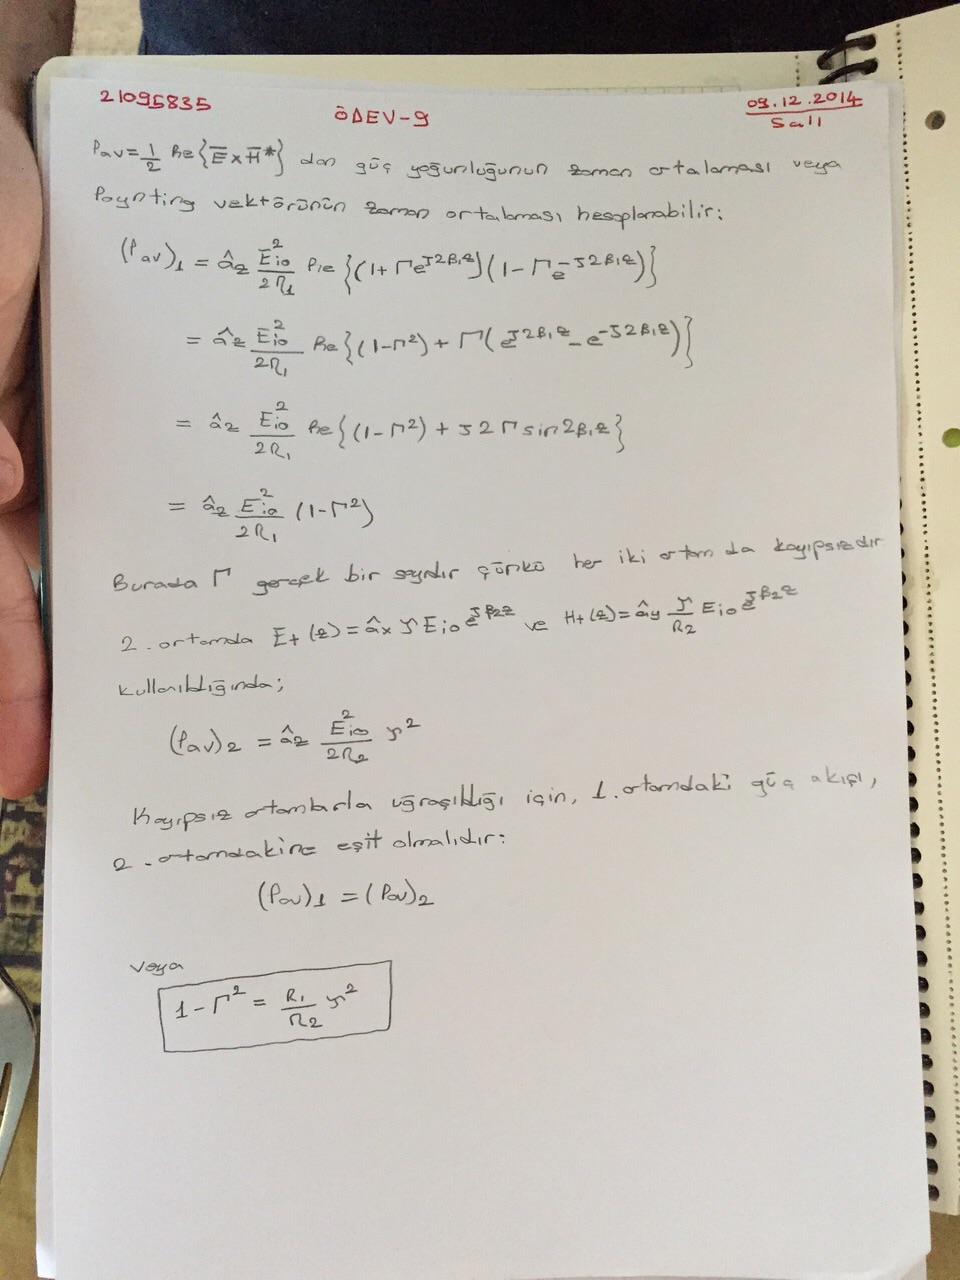 21095835
ÖDEV-9
09.12.2014
Salı
Pav = 1/2 Re{E̅ x H̅*} dan güç yoğunluğunun zaman ortalaması veya
Poynting vektörünün zaman ortalaması hesaplanabilir:
(Pav)1 = âz Eio²/2η1 Re{(1+Γe^j2β1z)(1-Γe^-j2β1z)}
= âz Eio²/2η1 Re{(1-Γ²) + Γ(e^j2β1z - e^-j2β1z)}
= âz Eio²/2η1 Re{(1-Γ²) + j2Γsin2β1z}
= âz Eio²/2η1 (1-Γ²)
Burada Γ gerçek bir sayıdır çünkü her iki ortam da kayıpsızdır
2. ortamda Et(z) = âx τ Eio e^jβ2z ve Ht(z) = ây τ/η2 Eio e^jβ2z
kullanıldığında;
(Pav)2 = âz Eio²/2η2 τ²
Kayıpsız ortamlarla uğraşıldığı için, 1. ortamdaki güç akışı,
2. ortamdakine eşit olmalıdır:
(Pav)1 = (Pav)2
veya
1-Γ² = η1/η2 τ²